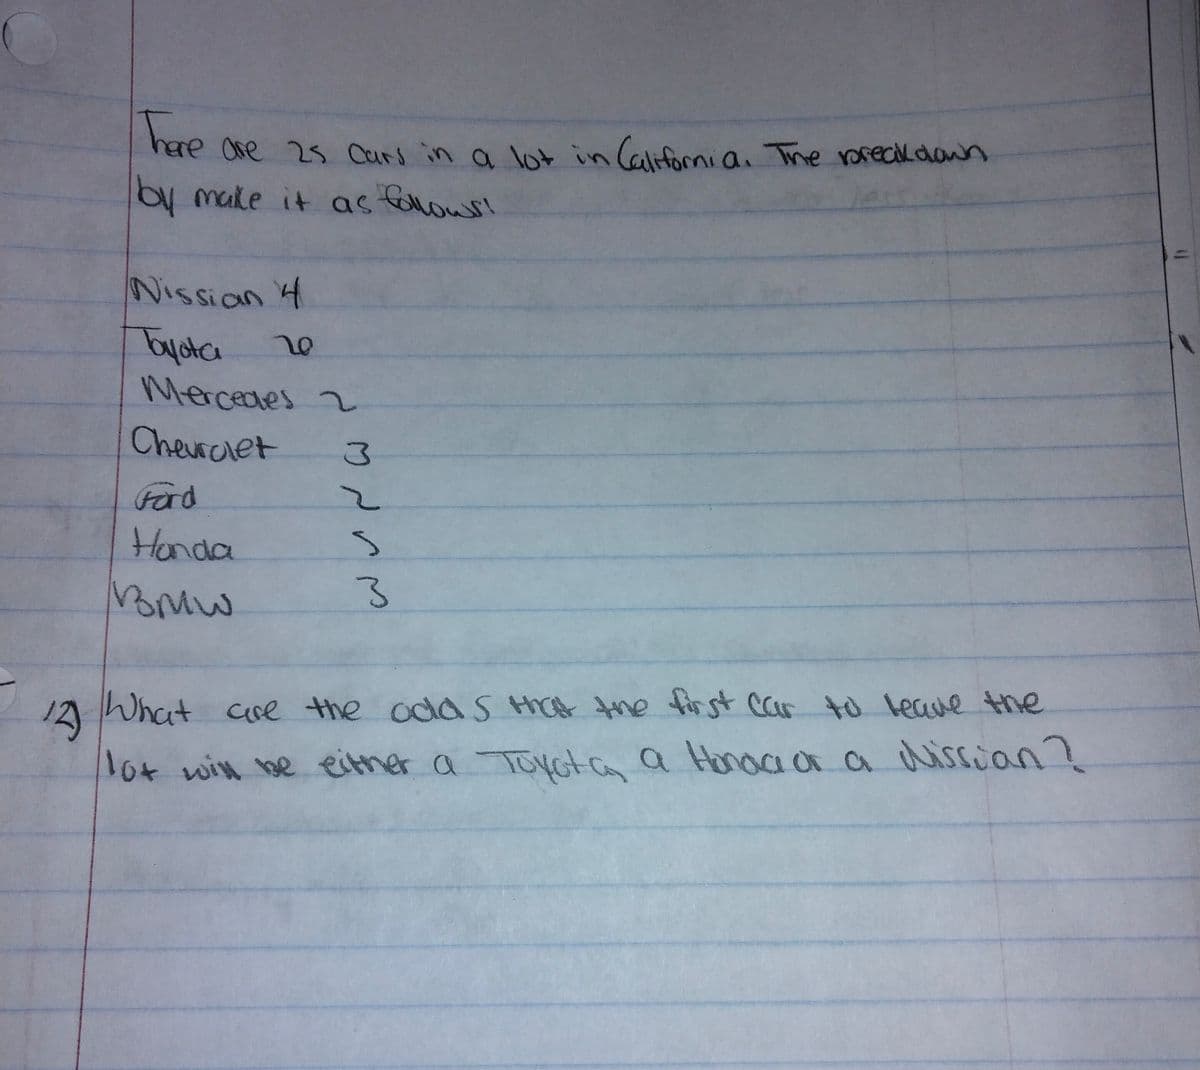 There are 25 Cars in a lot in California. The breakdown
by make it as follows!
Nissian 4
Toyota 20
Mercedes 2
Chevrolet 3
Ford 2
Honda 5
BMW 3
12) What are the odds that the first Car to leave the
lot will be either a Toyota, a Honda or a Nissian?